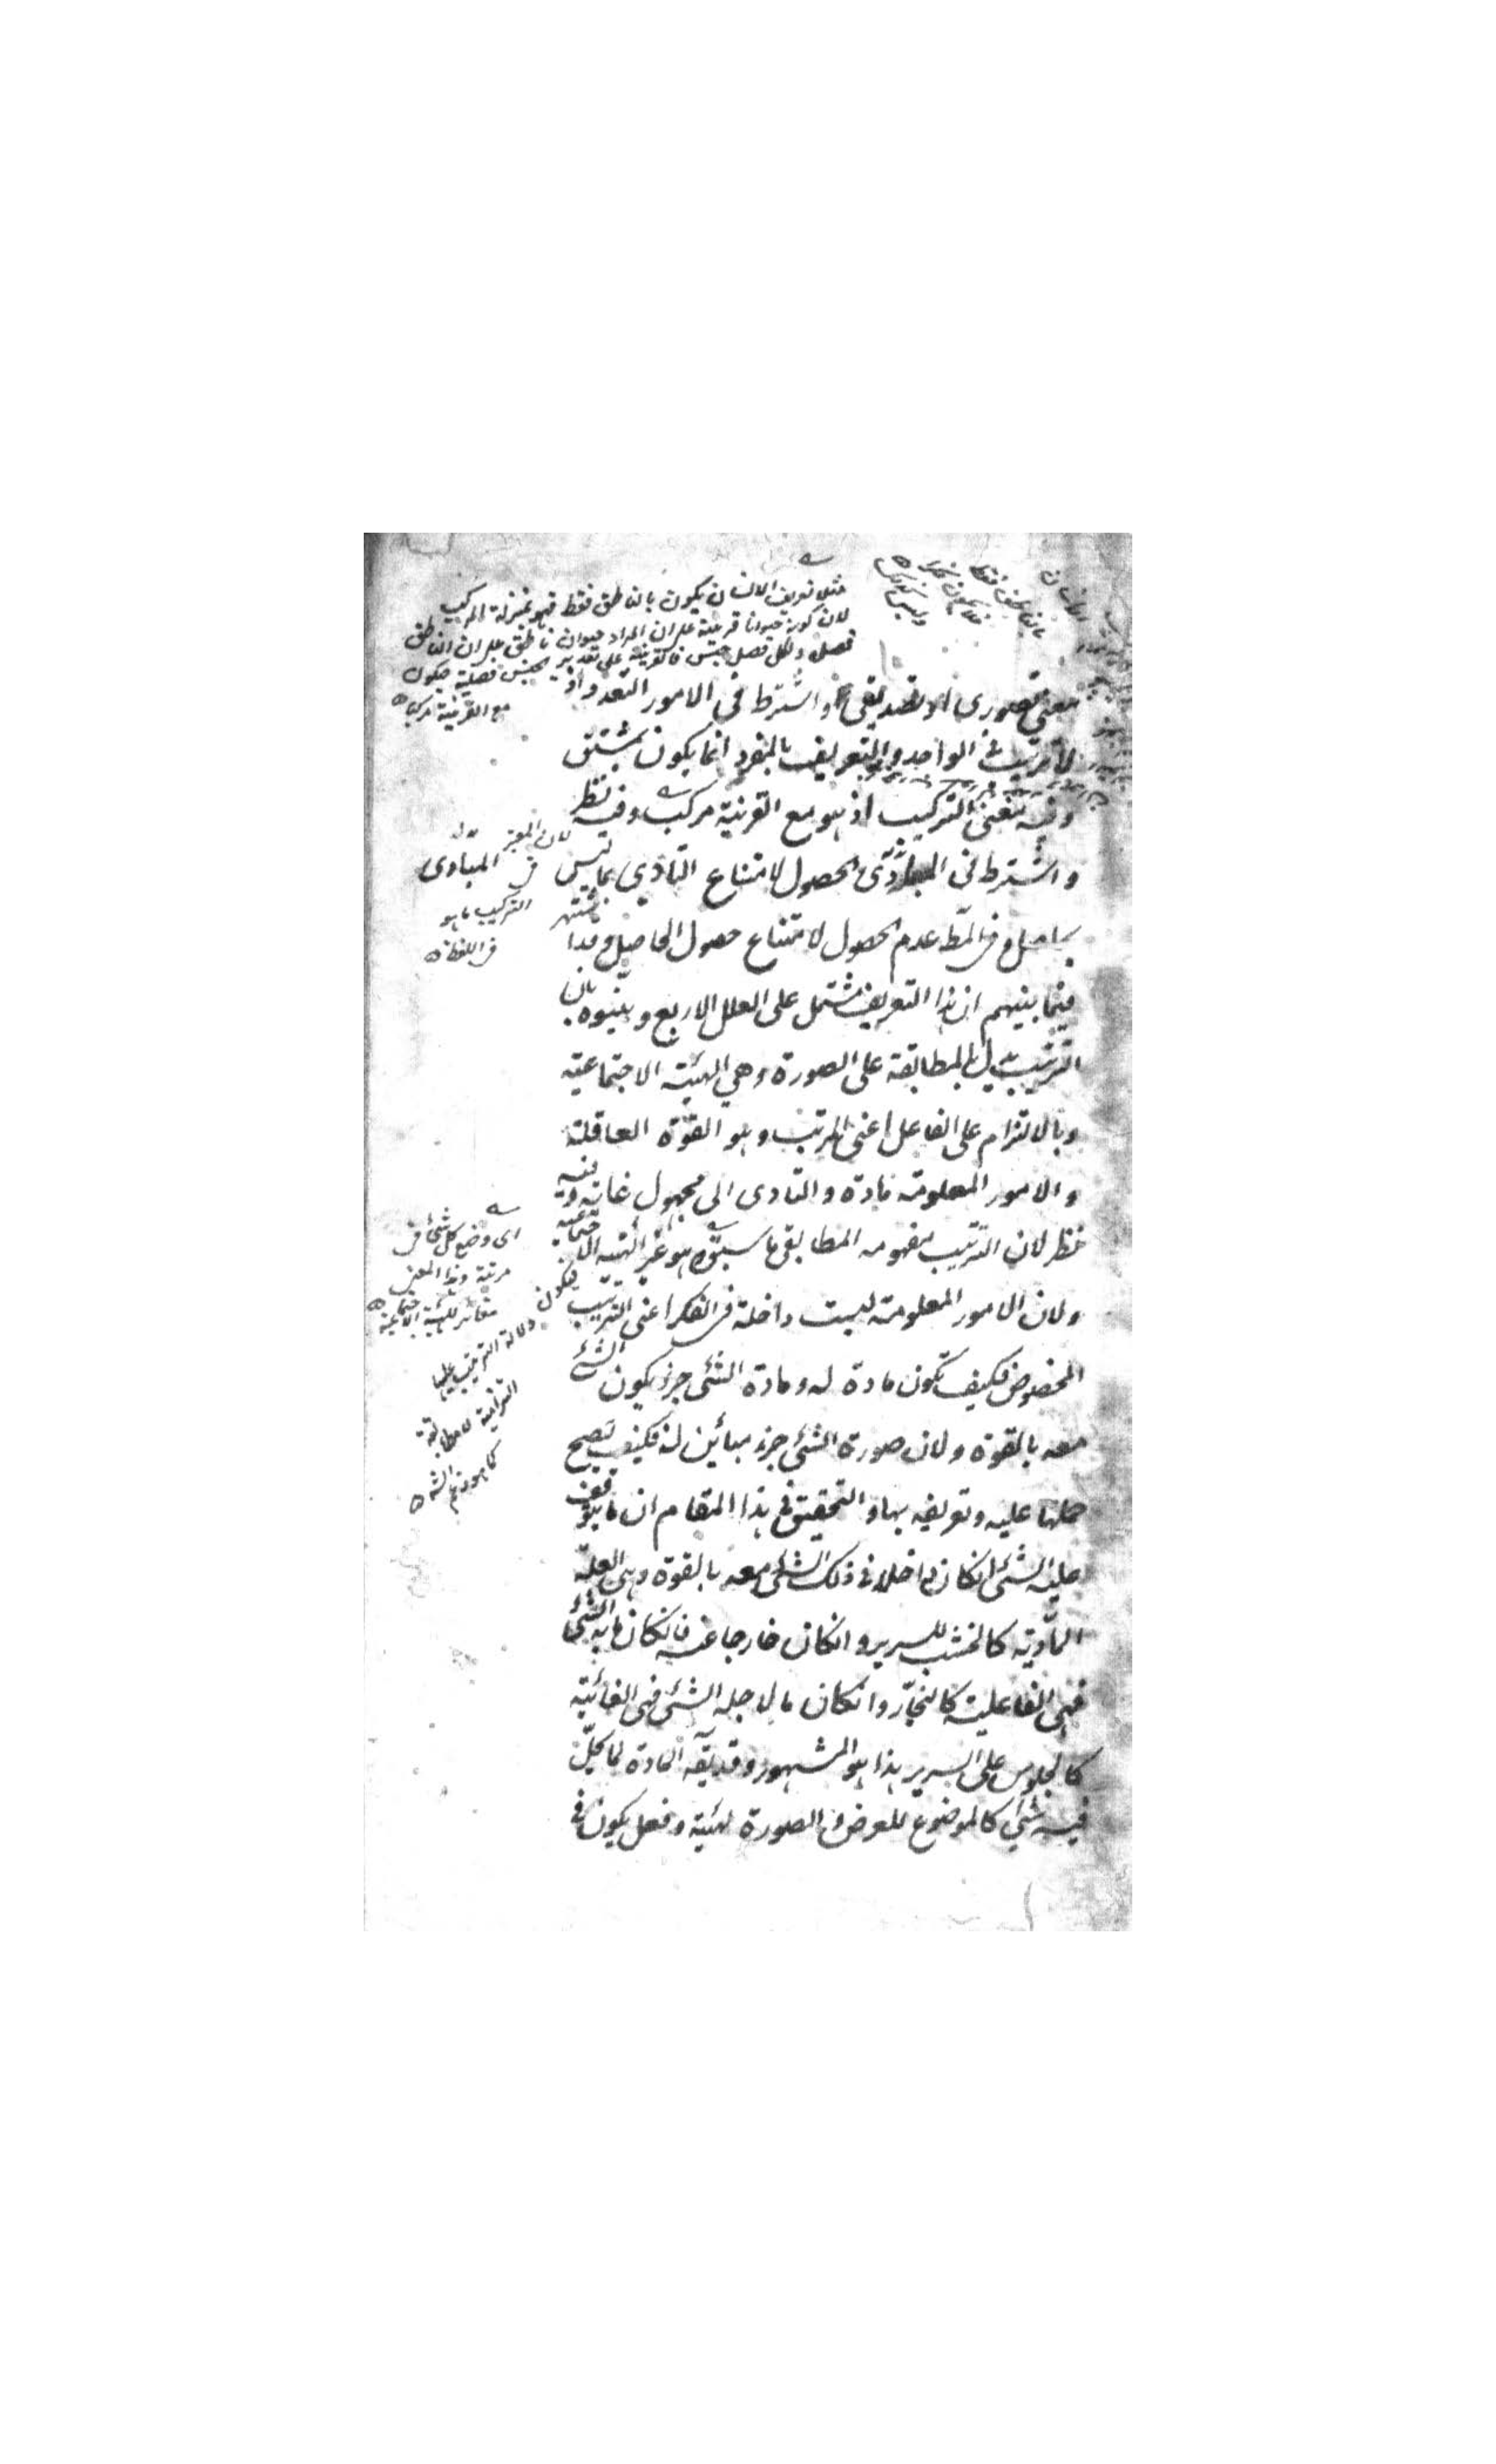 مثلا تعريف الانسان يكون بالناطق فقط فهو بمنزلة المركب
لان كونه حيوانا قرينة على ان المراد حيوان ناطق على ان الناطق
فصل ولكل فصل جنس فالقرينة على تقدير الجنس فصلية فيكون
مع القرينة مركبا
معنى تصورى او تصديقى واشترط فى الامور التعدد اذ
لا ترتيب فى الواحد والتعريف بالمفرد انما يكون بمشتق
وفيه معنى التركيب اذ هو مع القرينة مركب وفيه نظر
واشترط فى المبادى الحصول لامتناع التأدى بما ليس
بحاصل وفى المط عدم الحصول لامتناع حصول الحاصل وقد اشتهر
فيما بينهم ان هذا التعريف مشتمل على العلل الاربع وبينوه بان
الترتيب يدل بالمطابقة على الصورة وهى الهيئة الاجتماعية
وبالالتزام على الفاعل اعنى المرتب وهو القوة العاقلة
والامور المعلومة مادة والتادى الى مجهول غاية وفيه
نظر لان الترتيب مفهومه المطابقى ما سبق وهو غير الهيئة الاجتماعية
ولان الامور المعلومة ليست داخلة فى الفكر اعنى الترتيب
المخصوص فكيف تكون مادة له ومادة الشئ جزء يكون الشئ
معه بالقوة ولان صورة الشئ جزء مباين له فكيف يصح
حملها عليه وتعريفه بها والتحقيق فى هذا المقام ان ما يتوقف
عليه الشئ انكان داخلا فى ذلك الشئ معه بالقوة وهى العلة
المادية كالخشب للسرير وانكان خارجا عنه فانكان ما به الشئ
فهى الفاعلية كالنجار وانكان ما لاجله الشئ فهى الغائية
كالجلوس على السرير هذا هو المشهور وقد يقه المادة لما يحل
فيه شئ كالموضوع للعرض والصورة لهيئة وفعل يكون فى
لان المعتبر
فى
التركيب ما هو
فى اللفظ
المبادى
اى وضع كل شئ فى
مرتبة وهذا المعنى
مغاير للهيئة الاجتماعية
فيكون
دلالة الترتيب عليها
التزامية لا مطابقة
كما هو زعم الشه